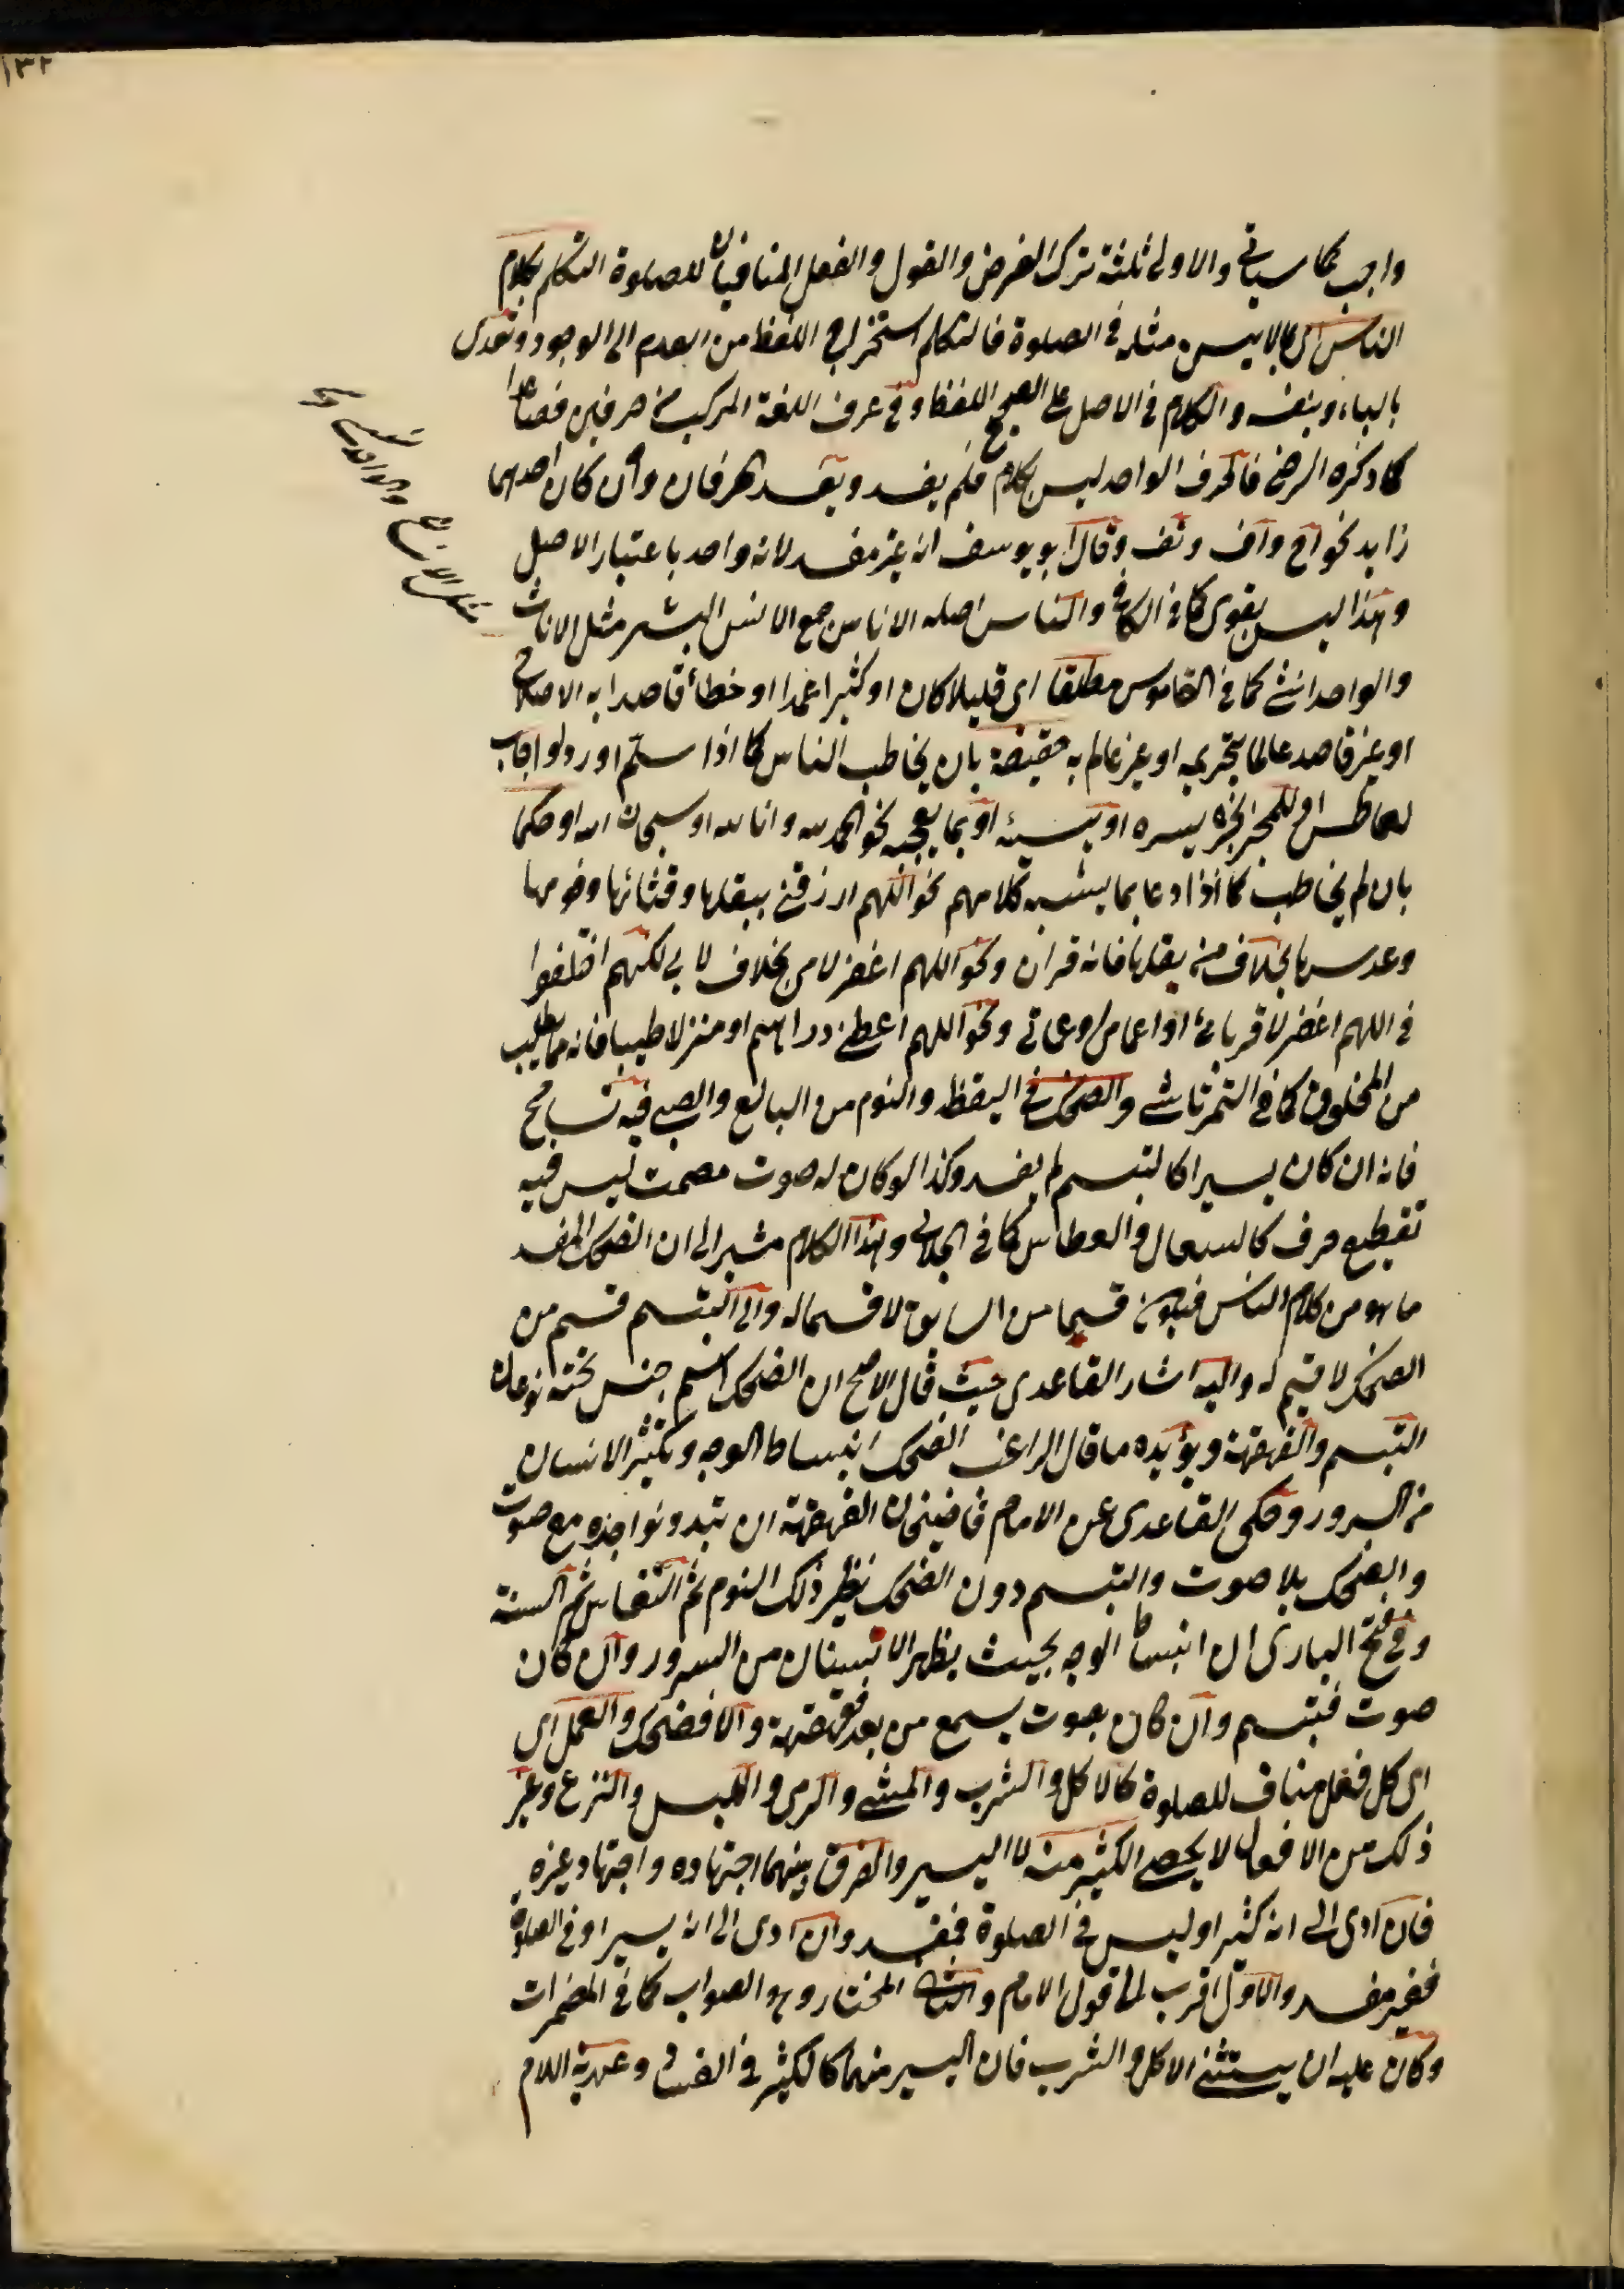 ١٣٢
واجب كما سياتي والاولى ثلثة ترك الفرض والقول والفعل المنافيان للصلوة التكلم بكلام
الناس اى بما لا ليس مثله فى الصلوة فالتكلم استخراج اللفظ من العدم الى الوجود وتعدى
بالباء وبنفسه والكلام فى الاصل على الصحيح اللفظ وفى عرف اللغة المركب من حرفين فصاعدا
كما ذكره الرضى فالحرف الواحد ليس بكلام فلم يفسد ويفسد الحرفان وان كان احدهما
زايد نحو اخ واف وتف وقال ابو يوسف انه غير مفسد لانه واحد باعتبار الاصل
وهذا ليس بقوى كما فى الكافى والناس اصله الاناس جمع الانس البشر مثل الاناث
والواحد انثى كما فى القاموس مطلقا اى قليلا كان او كثيرا عمدا او خطأ قاصدا به الاصلاح
او غير قاصد عالما بتحريمه او غير عالم به حقيقة بان يخاطب الناس كما اذا سلم او رد او اجاب
لعاطس او للمخبر بخبر يسره او يسيئه او بما يعجبه نحو الحمد لله وانا لله او سبحان الله او حكما
بان لم يخاطب كما اذا دعا بما يشبه كلامهم نحو اللهم ارزقنى ببقلها وقثائها وفومها
وعدسها بخلاف من بقلها فانه قرآن ونحو اللهم اغفر لامى بخلاف لابى لكنهم اختلفوا
فى اللهم اغفر لاقربائى او اعمامى وعماتى ونحو اللهم اعطنى دراهم او منزلا طيبا فانه مما يطلب
من المخلوق كما فى التمرتاشى والضحك فى اليقظة والنوم من البالغ والصبى فيه تسامح
فانه ان كان يسيرا كالتبسم لم يفسد وكذا لو كان له صوت مصمت ليس فيه
تقطيع حرف كالسعال والعطاس كما فى الجلابى وهذا الكلام مشير الى ان الضحك المفسد
ما هو من كلام الناس فيكون قسيما من السابق لا قسما له والى التبسم قسم من
الضحك لا قسيم له واليه اشار القاعدى حيث قال الاصح ان الضحك اسم جنس تحته نوعان
التبسم والقهقهة ويؤيده ما قال الراغب الضحك انبساط الوجه وتكثر الانسان
من السرور وحكى القاعدى عن الامام قاضيخان القهقهة ان تبدو نواجذه مع صوت
والضحك بلا صوت والتبسم دون الضحك نظير ذلك النوم ثم النعاس ثم السنة
وفى فتح البارى ان انبساط الوجه بحيث يظهر الاسنان من السرور وان كان
صوت فتبسم وان كان بصوت يسمع من بعد فقهقهة والا فضحك والعمل اى
اى كل فعل مناف للصلوة كالاكل والشرب والمشى والرمى واللبس والنزع وغير
ذلك من الافعال لا يحصى الكثير منه لا اليسير والفرق بينهما اجتهاده واجتهاد غيره
فان ادى الى انه كثير او ليس فى الصلوة فمفسد وان ادى الى انه يسير او فى الصلوة
فغير مفسد والاول اقرب الى قول الامام والثانى المختار وهو الصواب كما فى المضمرات
وكان عليه ان يستثنى الاكل والشرب فان اليسير منهما كالكثير فى الفساد وعهدية اللام